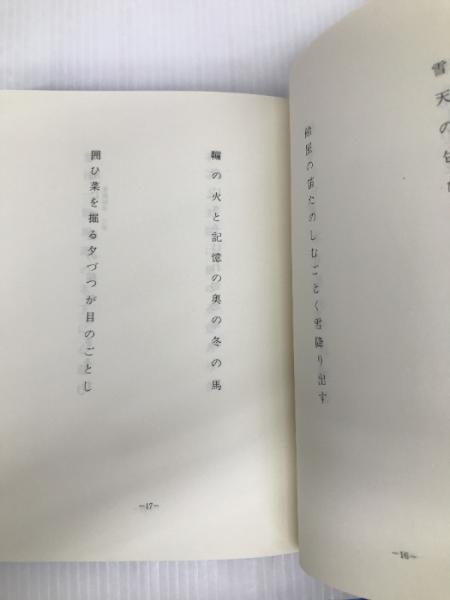 雪天の
隙風の笛たのしむごとく雪降り出す
~16~
鞴の火と記憶の奥の冬の馬
囲ひ菜を掘る夕づつが目のごとし
~17~